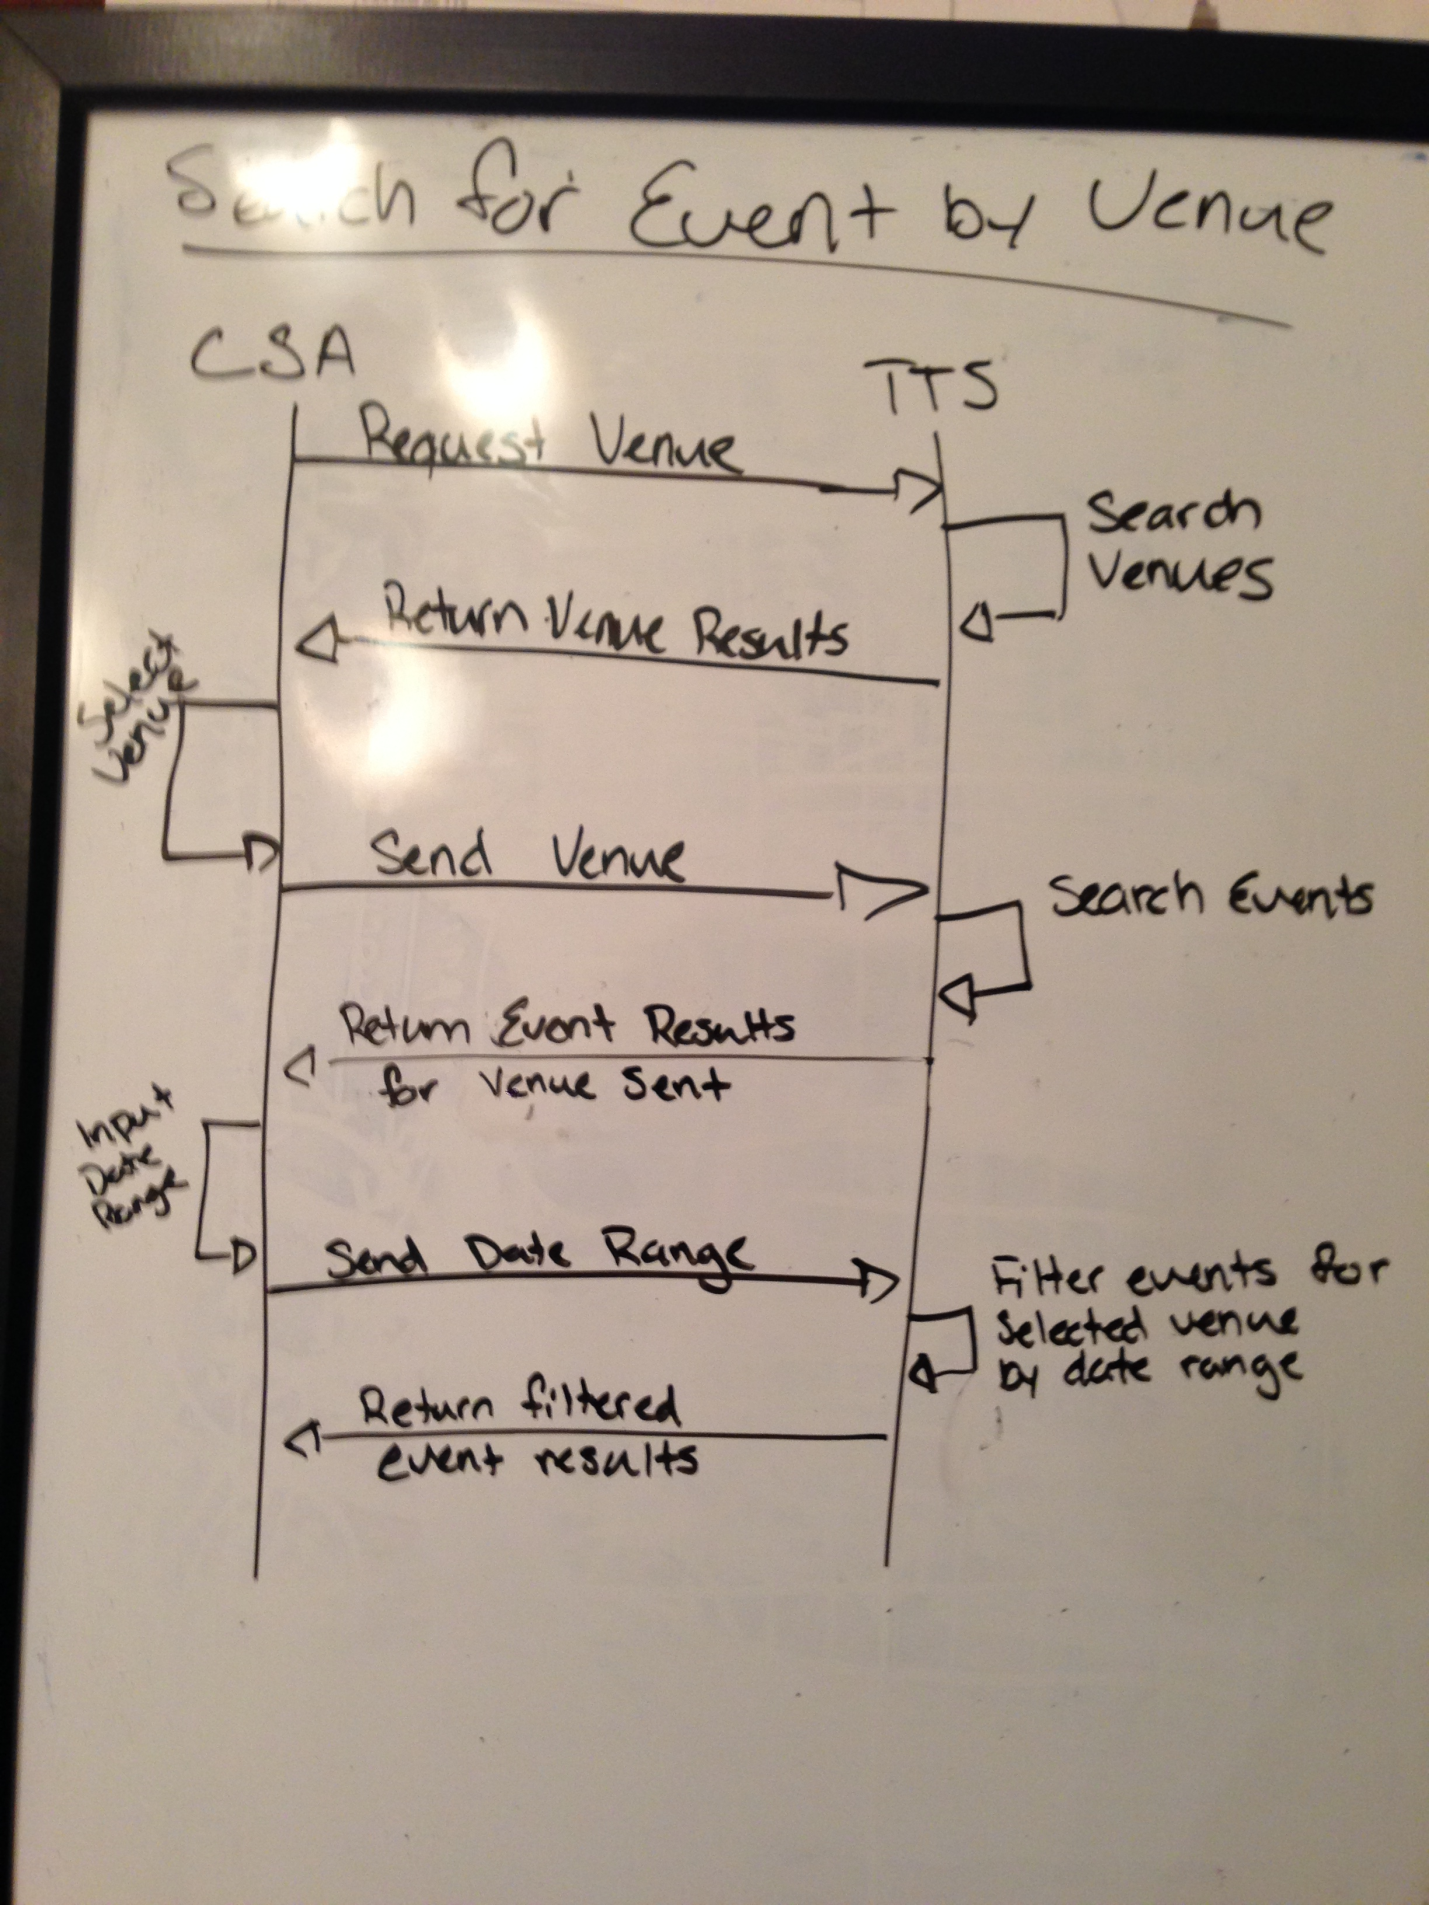 Search for Event by Venue
CSA
TTS
Request Venue
Search
Venues
Return Venue Results
Select
Venue
Send Venue
Search Events
Return Event Results
for Venue Sent
Input
Date
Range
Send Date Range
Filter events for
selected venue
by date range
Return filtered
event results